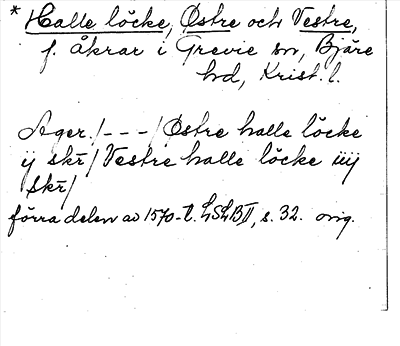 * Halle löcke, Östre och Vestre,
f. åkrar i Grevie sn, Bjäre
hd, Krist. l.
Ager. / - - - / Östre halle löcke
ij skr̄ / Vestre halle löcke iiij
skr̄ /
förra delen av 1570-t. LSLB II, s. 32. orig.